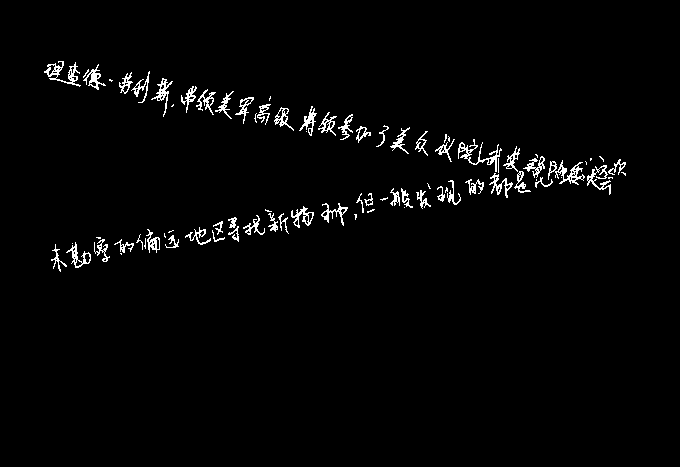 理查德·劳利斯,带领美军高级将领参加了美众议院武装部队
未勘察的偏远地区寻找新物种,但一般发现的都是